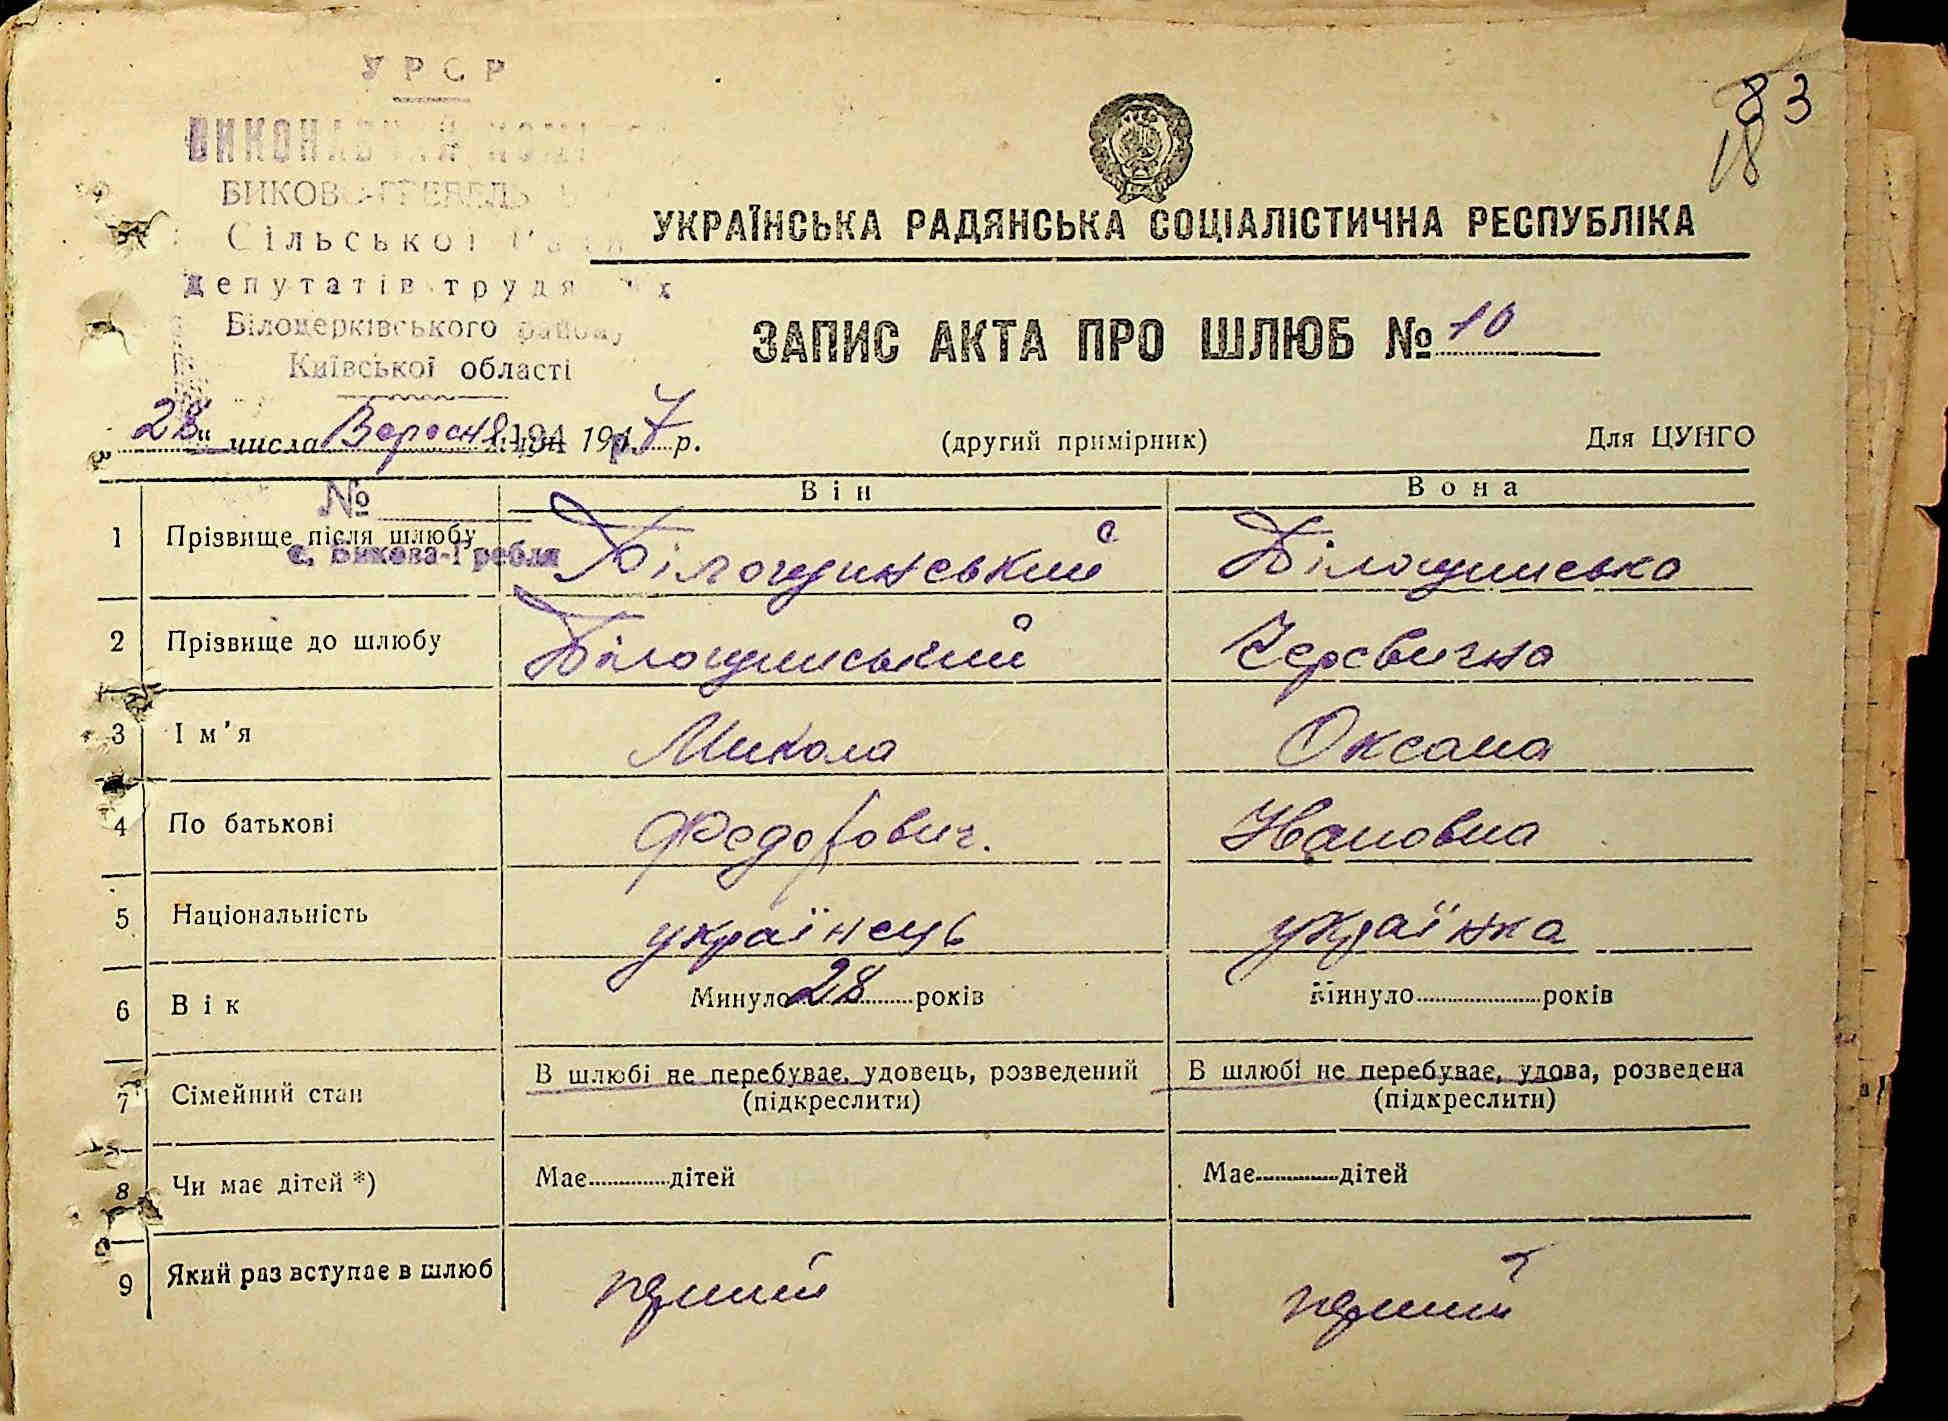 УРСР
ВИКОНАВЧИЙ КОМІ
БИКОВО-ГРЕБЕЛЬ
Сільської Ради
депутатів трудящих
Білоцерківського району
Київської області
83
18
УКРАЇНСЬКА РАДЯНСЬКА СОЦІАЛІСТИЧНА РЕСПУБЛІКА
ЗАПИС АКТА ПРО ШЛЮБ № 10
28 " числа Вересня 194 1947 р.
(другий примірник)
Для ЦУНГО
№
с. Бикова-Гребля
Він Вона
1 Прізвище після шлюбу Білощинський Білощинська
2 Прізвище до шлюбу Білощинський Черевична
3 Ім'я Микола Оксана
4 По батькові Федорович. Ивановна
5 Національність українець українка
6 Вік Минуло 28 років Минуло років
7 Сімейний стан В шлюбі не перебуває, удовець, розведений В шлюбі не перебуває, удова, розведена
(підкреслити) (підкреслити)
8 Чи має дітей *) Має дітей Має дітей
9 Який раз вступає в шлюб перший перший